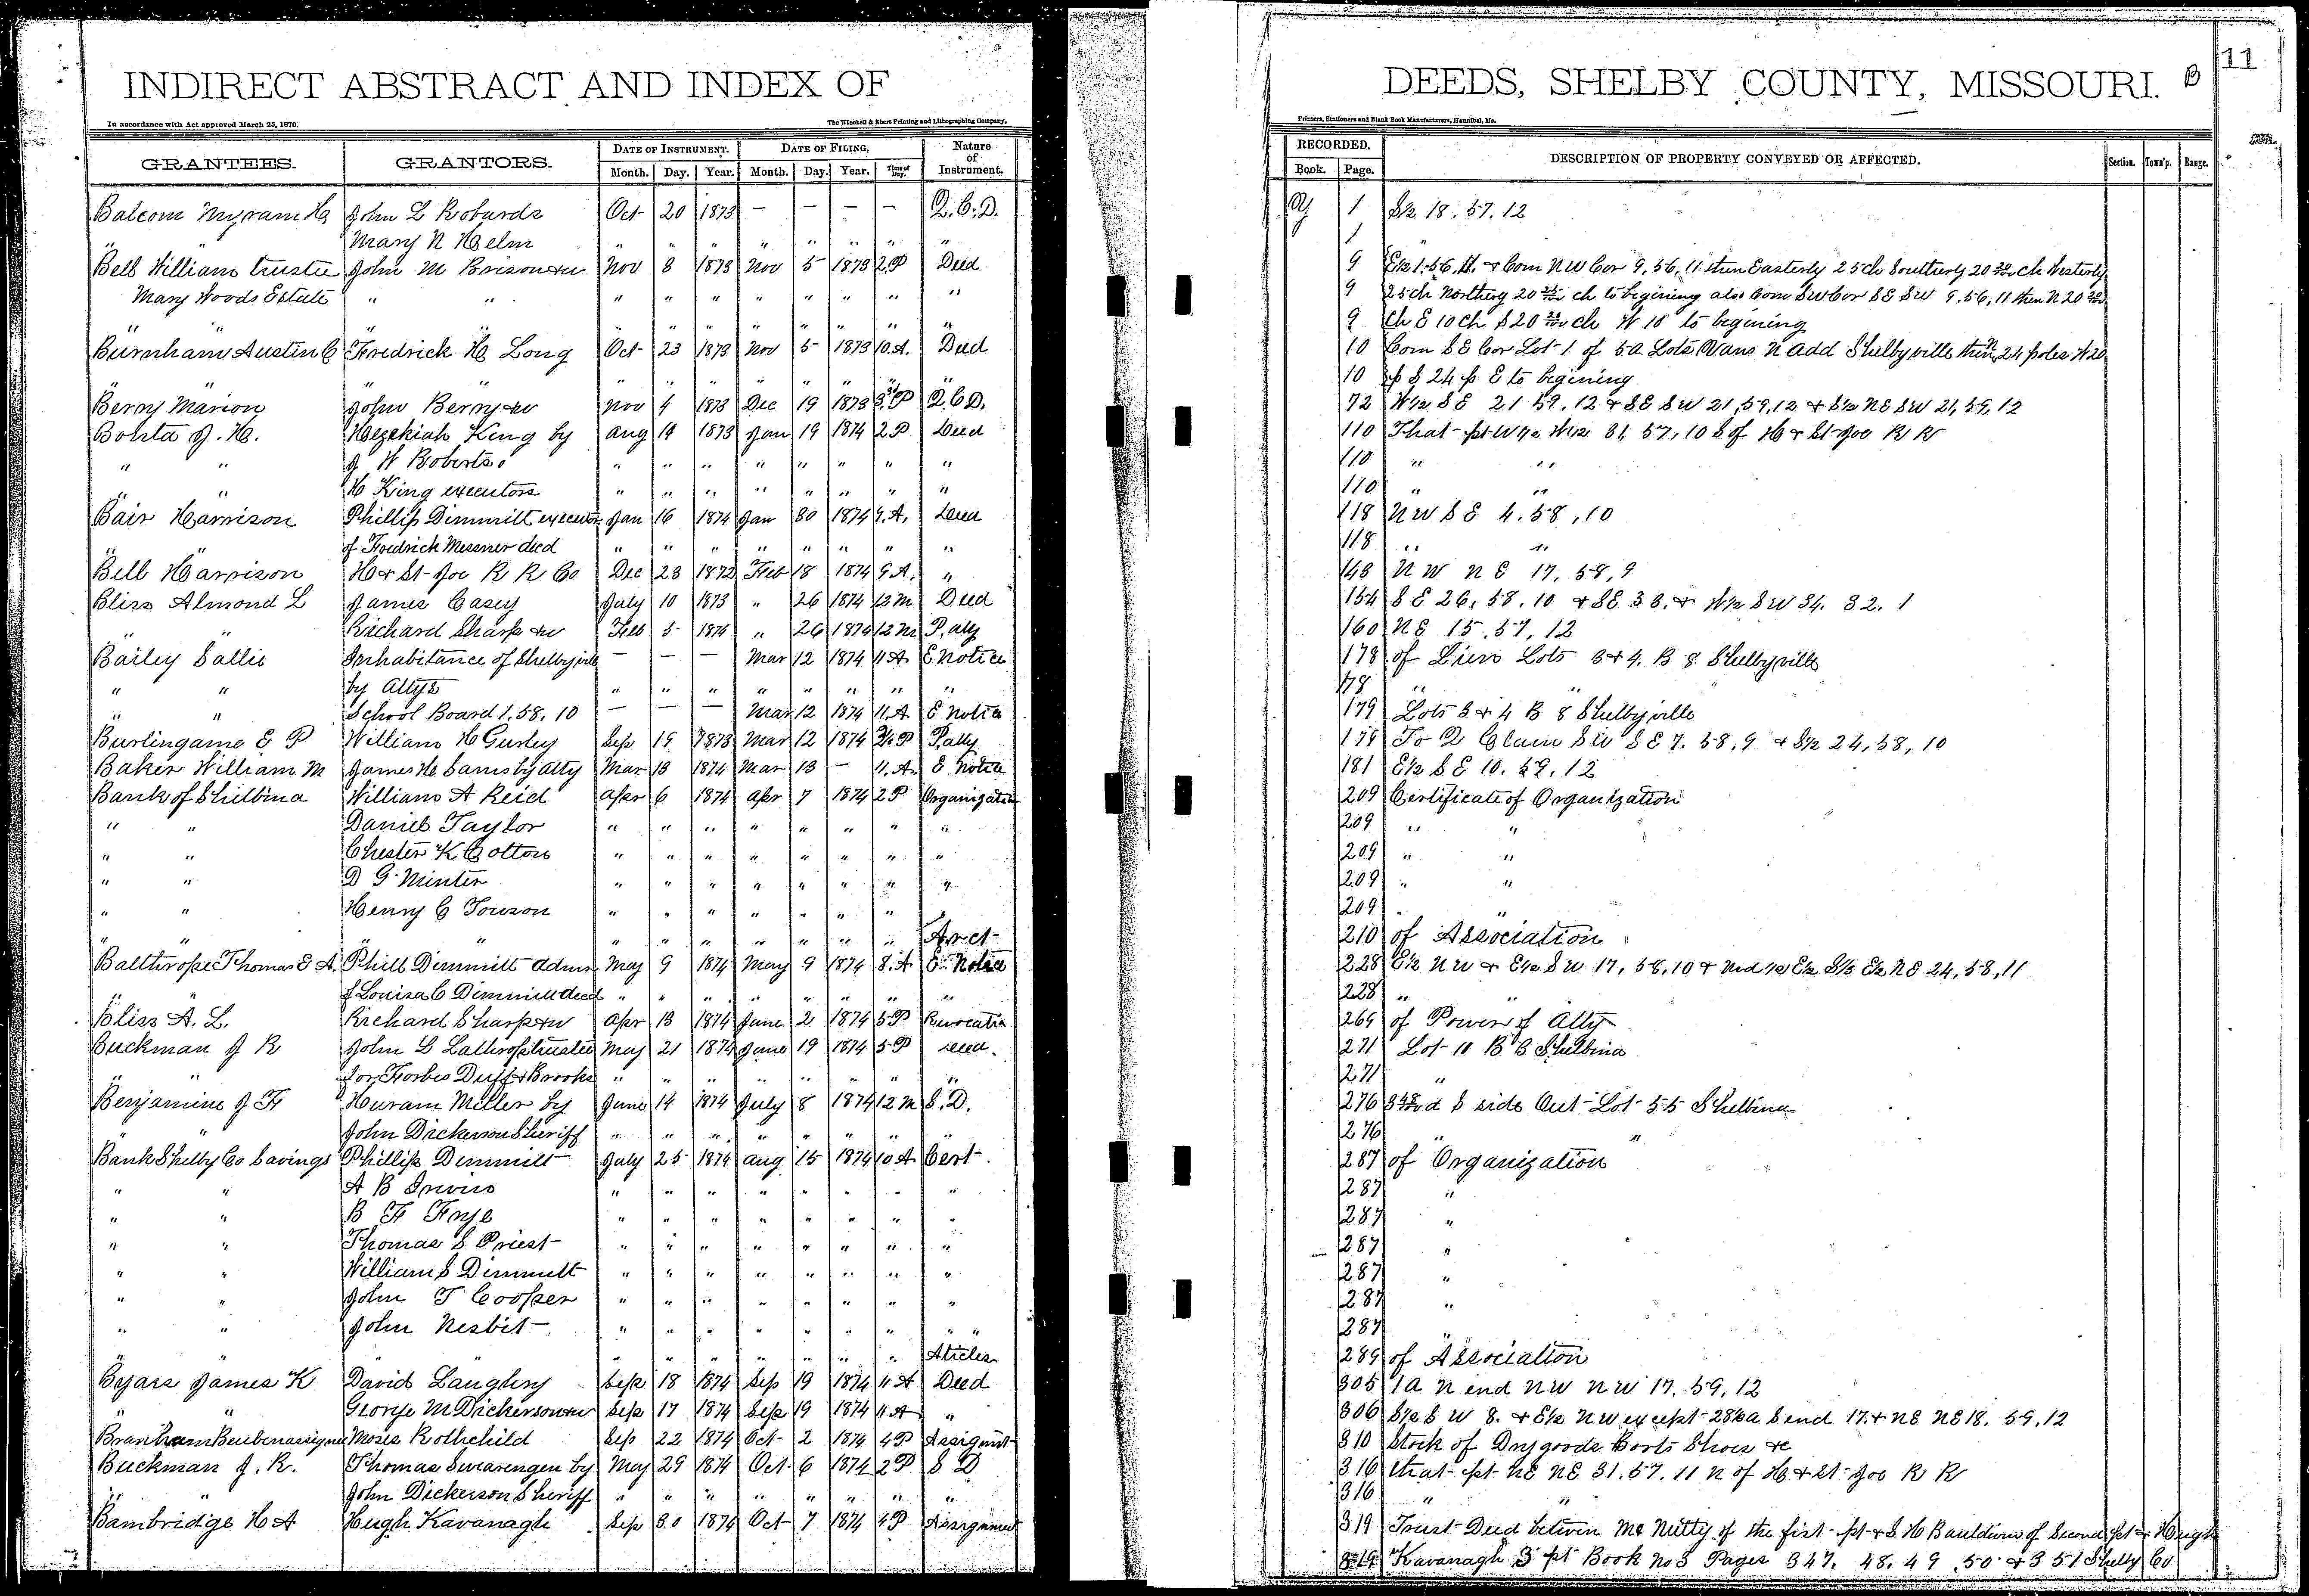 INDIRECT ABSTRACT AND INDEX OF
In accordance with Act approved March 25, 1870.
The Winchell & Ebert Printing and Lithographing Company,
GRANTEES. GRANTORS. DATE OF INSTRUMENT. DATE OF FILING. Nature of Instrument.
Month. Day. Year. Month. Day. Year. Time of Day.
Balcom Myram H John L Robards Oct 20 1873 — — — — Q.C.D.
" " Mary N Helm " " " " " " " "
Bell William trustee John M Brison & w Nov 3 1873 Nov 5 1873 2.P Deed
Mary Woods Estate " " " " " " " " " "
" " " " " " " " " "
Burnham Austin C Fredrick H Long Oct 23 1873 Nov 5 1873 10.A. Deed
" " " " " " " " " " " "
Berry Marion John Berry & w Nov 4 1873 Dec 19 1873 P Q.C.D.
Bohta J. H. Hezekiah King by Aug 19 1873 Jan 19 1874 2P Deed
" " J W Roberts & " " " " " " " "
" " H King executors " " " " " " " "
Bair Harrison Phillip Dimmitt executor Jan 16 1874 Jan 30 1874 9.A. Deed
" " of Fredrick Messner decd " " " " " " " "
Bell Harrison H & St Joe R R Co Dec 23 1872 Feb 18 1874 9A. "
Bliss Almond L James Casey July 10 1873 " 26 1874 12M Deed
" " Richard Sharp & w Feb 5 1874 " 26 1874 12M P. atty
Bailey Sallie Inhabitance of Shelbyville — — — Mar 12 1874 11A E Notice
" " by Attys " " " " " " " "
" " School Board 1.58.10 — — — Mar 12 1874 11.A. E Notice
Burlingame E P William H Gurley Sep 19 1873 Mar 12 1874 P P. atty
Baker William M James H Sams by Atty Mar 13 1874 Mar 13 — 11.A. E Notice
Bank of Shelbina William A Reid Apr 6 1874 Apr 7 1874 2P Organization
" " Daniel Taylor " " " " " " " "
" " Chester K Cotton " " " " " " " "
" " D G Minter " " " " " " " "
" " Henry C Towson " " " " " " "
" " " " " " " " " " " Arct
Balthrope Thomas E A. Phill Dimmitt Admr May 9 1874 May 9 1874 8.A E. Notice
of Louisa C Dimmitt decd " " " " " " " "
Bliss A. L. Richard Sharp & w Apr 13 1874 June 2 1874 5P Revocatio
Buckman J R John L Lathrop trustee May 21 1874 June 19 1874 5P Deed.
" " for Forbes Duff & Brooks " " " " " " " "
Benjamine J F Huram Miller by June 14 1874 July 8 1874 12M S.D.
" John Dickerson Sheriff " " " " " " " "
Bank Shelby Co Savings Phillip Dimmitt July 25 1874 Aug 15 1874 10A Cert.
" " A B Irvins " " " " " " " "
" " B F Frye " " " " " " " "
" " Thomas S Priest " " " " " " " "
" " William S Dimmitt " " " " " " " "
" " John T Cooper " " " " " " " "
" " John Nesbit " " " " " " " " "
" " " " " " " " " " " Aticles
Byars James K David Laughry Sep 18 1874 Sep 19 1874 11A Deed
" " George M Dickerson & w Sep 17 1874 Sep 19 1874 11A "
Branham Beuben assignee Moses Rothchild Sep 22 1874 Oct 2 1874 4P Assignmt
Buckman J. R. Thomas Swearengen by May 29 1874 Oct 6 1874 2P S D
" " John Dickerson Sheriff " " " " " " " "
Bambridge H A Hugh Kavanagh Sep 30 1874 Oct 7 1874 4P Assignment
DEEDS, SHELBY COUNTY, MISSOURI. B 11
Printers, Stationers and Blank Book Manufacturers, Hannibal, Mo.
RECORDED. DESCRIPTION OF PROPERTY CONVEYED OR AFFECTED. Section. Town'p. Range.
Book. Page.
1 S½ 18.57.12
1
9 E½ 1.56.11. & Com NW Cor 9,56,11 then Easterly 25ch Southerly 20 ch Westerly
9 25ch Northery 20 ch to begining also Com SW Cor SE SW 9.56,11 then N 20
9 Ch E 10 Ch S 20 ch W 10 to begining
10 Com SE Cor Lot 1 of 5a Lots Vans N Add Shelbyville then N 24 poles W 20
10 p S 24 p E to begining
72 W½ SE 21.59.12 & SE SW 21,59,12 & S½ NE SW 21,59,12
110 That pt W½ W½ 31,57,10 S of H & St Joe R R
110 " "
110 " "
118 NW SE 4.58,10
118 " "
143 NW NE 17,58,9
154 SE 26,58.10 & SE 33. & W½ SW 34. 32.1
160 NE 15.57,12
178 of Lien Lots 3 & 4. B 8 Shelbyville
178 " "
179 Lots 3 & 4 B 8 Shelbyville
179 To Q Claim SW SE 7.58,9 & S½ 24,58,10
181 E½ SE 10.59.12
209 Certificate of Organization
209 " "
209 " "
209 " "
209 " "
210 of Association
228 E½ NW & E½ SW 17,58,10 & Mid ½ E½ S½ E½ NE 24,58,11
228 " "
269 of Power of Atty
271 Lot 11 B 3 Shelbina
271 "
276 a S side Out Lot 55 Shelbina
276 " "
287 of Organization
287 "
287 "
287 "
287 "
287 "
287 "
289 of Association
305 1a N end NW NW 17.59,12
306 S½ SW 8. & E½ NW except 28½a S end 17. & NE NE 18. 59.12
310 Stock of Drygoods Boots Shoes &c
316 that pt NE NE 31.57.11 N of H & St Joe R R
316 " "
319 Trust Deed betwen Mc Nutty of the first pt & S H Bauldwin of Second pt & Hugh
319 Kavanagh 3 pt Book No 3 Pages 347. 48.49.50 & 351 Shelby Co